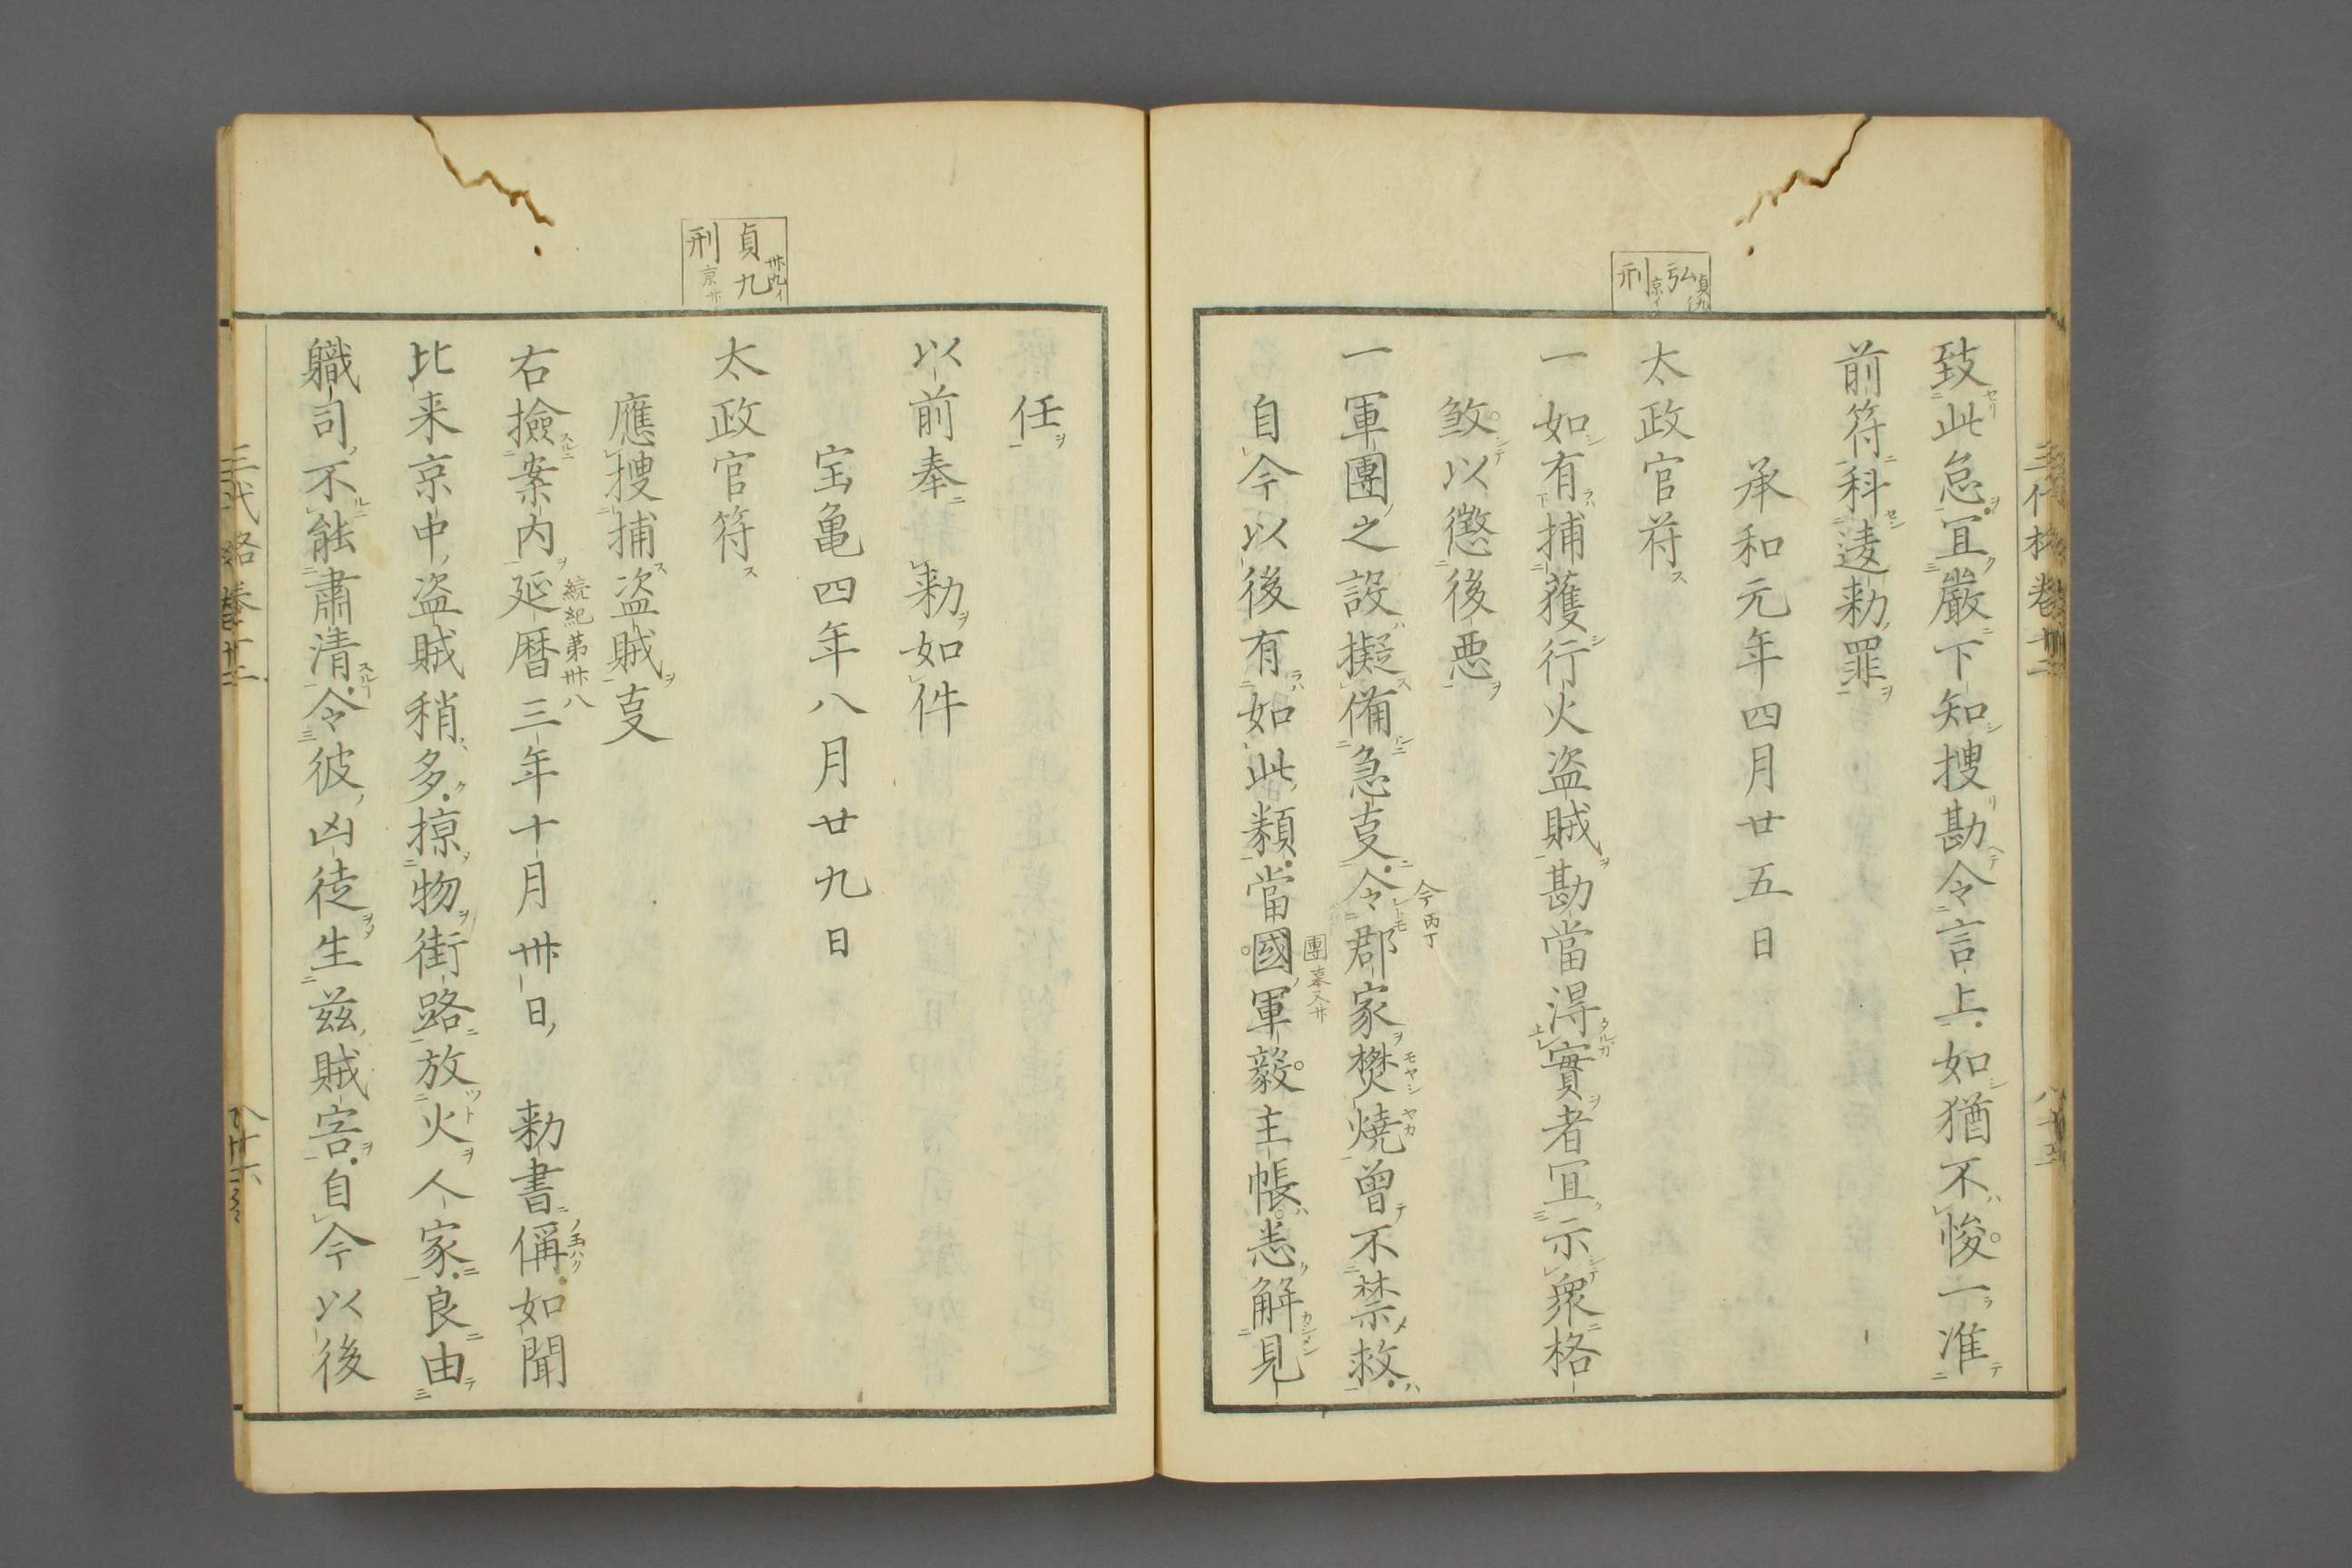 致此怠宜嚴下知搜勘令言上如猶不悛一准
前符科違勅罪
承和元年四月廿五日
弘
刑
太政官苻
一如有捕獲行火盗賊勘當得實者宜示衆格
煞以懲後悪
一軍團之設擬俻急㕝令郡家焚燒曽不禁救
今丙丁
自今以後有如此類當國軍毅主帳悉解見
任
以前奉 勅如件
宝亀四年八月廿九日
貞九
刑
太政官符
應搜捕盗賊㕝
右撿案内延暦三年十月卅日 勅書偁如聞
続紀第卅八
比来京中盗賊稍多掠物街路放火人家良由
軄司不能肅清令彼凶徒生兹賊害自今以後